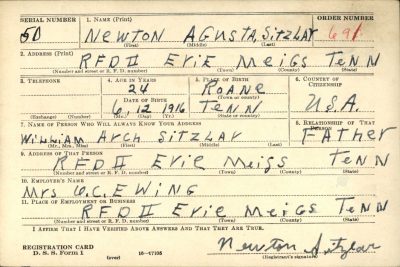 SERIAL NUMBER 1. NAME (Print) ORDER NUMBER
50 NEWTON AGUSTA SITZLAR 691
(First) (Middle) (Last)
2. ADDRESS (Print)
RFD II EVIE MEIGS TENN
(Number and street or R. F. D. number) (Town) (County) (State)
3. TELEPHONE 4. AGE IN YEARS 5. PLACE OF BIRTH 6. COUNTRY OF CITIZENSHIP
24 ROANE
(Town or county)
DATE OF BIRTH
6 12 1916 TENN U.S.A.
(Exchange) (Number) (Mo.) (Day) (Yr.) (State or country)
7. NAME OF PERSON WHO WILL ALWAYS KNOW YOUR ADDRESS 8. RELATIONSHIP OF THAT PERSON
WILLIAM ARCH SITZLAR FATHER
(Mr., Mrs., Miss) (First) (Middle) (Last)
9. ADDRESS OF THAT PERSON
RFD II EVIE Meigs TENN
(Number and street or R. F. D. number) (Town) (County) (State)
10. EMPLOYER'S NAME
Mrs O.C. EWING
11. PLACE OF EMPLOYMENT OR BUSINESS
RFD II EVIE MEIGS TENN
(Number and street or R. F. D. number) (Town) (County) (State)
I AFFIRM THAT I HAVE VERIFIED ABOVE ANSWERS AND THAT THEY ARE TRUE.
REGISTRATION CARD
D. S. S. Form 1 (over) 16-17105 Newton Sitzlar
(Registrant's signature)